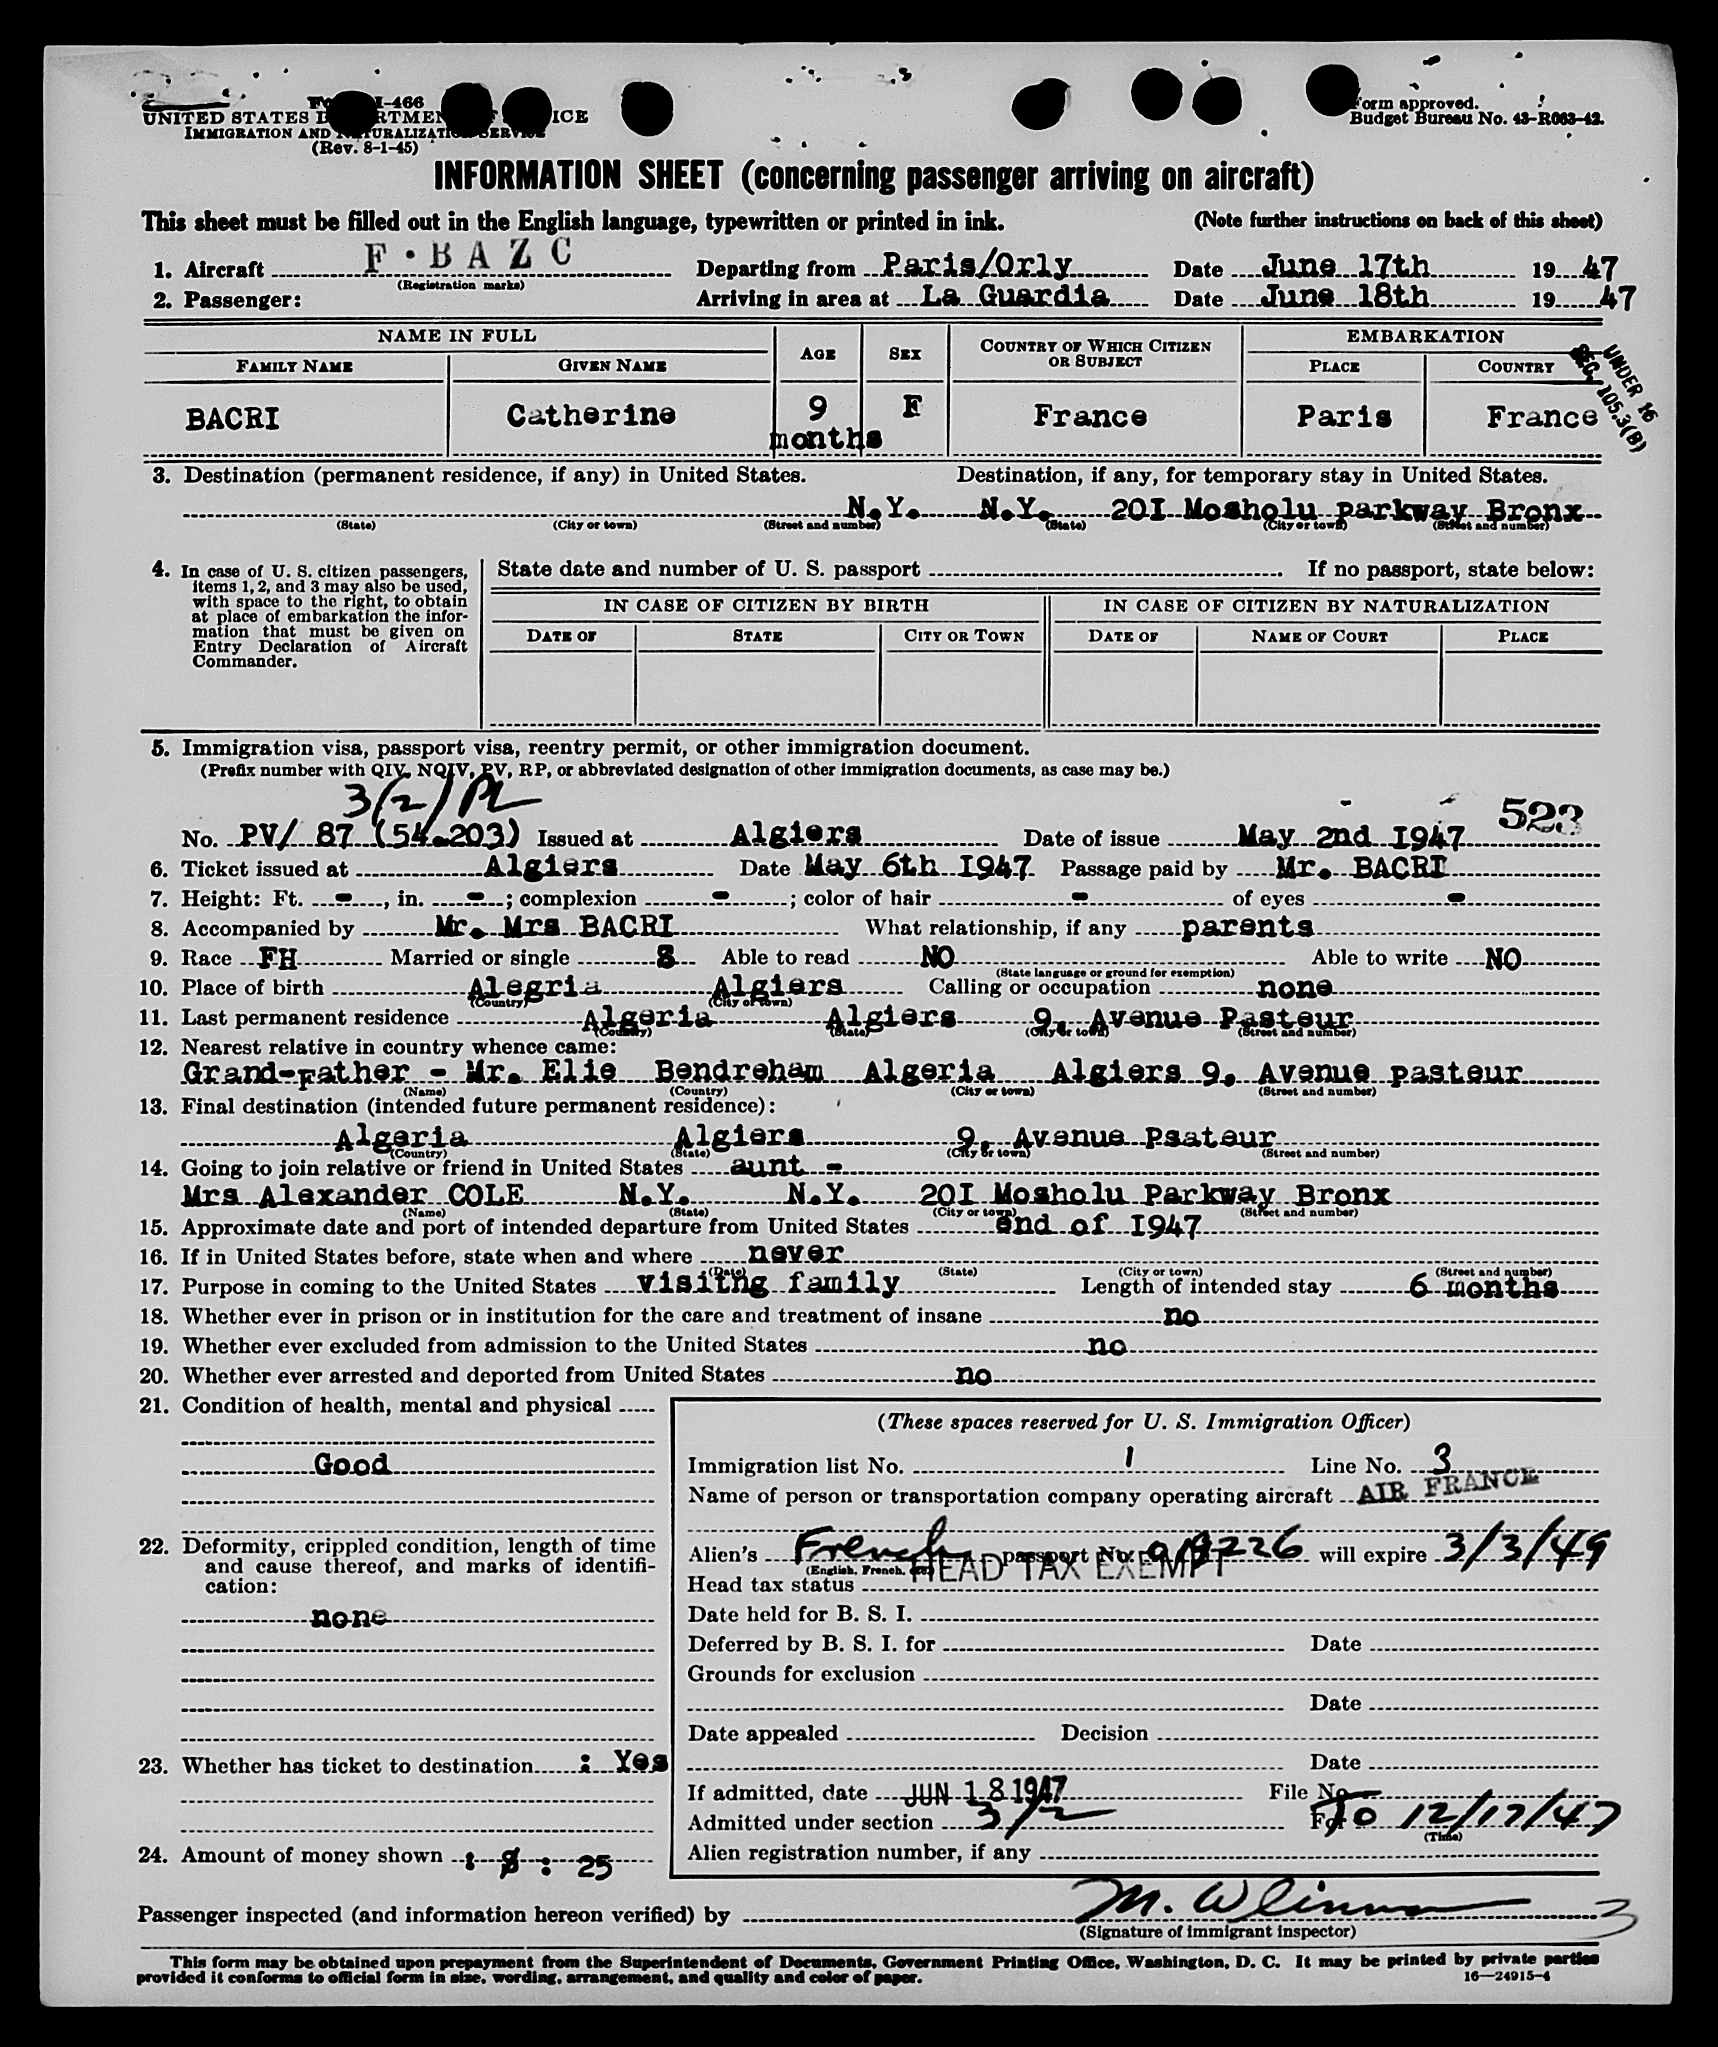 I-466 Form approved.
UNITED STATES Budget Bureau No. 43-R063-42.
IMMIGRATION AND NATURALIZATION SERVICE
(Rev. 8-1-45)
INFORMATION SHEET (concerning passenger arriving on aircraft)
This sheet must be filled out in the English language, typewritten or printed in ink. (Note further instructions on back of this sheet)
1. Aircraft F·BAZC Departing from Paris/Orly Date June 17th 1947
(Registration marks)
2. Passenger: Arriving in area at La Guardia Date June 18th 1947
NAME IN FULL AGE SEX COUNTRY OF WHICH CITIZEN OR SUBJECT EMBARKATION
FAMILY NAME GIVEN NAME PLACE COUNTRY
UNDER 16
SEC. 105.3(B)
BACRI Catherine 9 months F France Paris France
3. Destination (permanent residence, if any) in United States. Destination, if any, for temporary stay in United States.
N.Y. N.Y. 20I Mosholu Parkway Bronx
(State) (City or town) (Street and number) (State) (City or town) (Street and number)
4. In case of U. S. citizen passengers, items 1, 2, and 3 may also be used, with space to the right, to obtain at place of embarkation the information that must be given on Entry Declaration of Aircraft Commander.
State date and number of U. S. passport If no passport, state below:
IN CASE OF CITIZEN BY BIRTH IN CASE OF CITIZEN BY NATURALIZATION
DATE OF STATE CITY OR TOWN DATE OF NAME OF COURT PLACE
5. Immigration visa, passport visa, reentry permit, or other immigration document.
(Prefix number with QIV, NQIV, PV, RP, or abbreviated designation of other immigration documents, as case may be.)
3/2/PL
523
No. PV/ 87 (54.203) Issued at Algiers Date of issue May 2nd I947
6. Ticket issued at Algiers Date May 6th I947 Passage paid by Mr. BACRI
7. Height: Ft. -, in. -; complexion -; color of hair - of eyes -
8. Accompanied by Mr. Mrs BACRI What relationship, if any parents
9. Race FH Married or single S Able to read NO Able to write NO
(State language or ground for exemption)
10. Place of birth Alegria Algiers Calling or occupation none
(Country) (City or town)
11. Last permanent residence Algeria Algiers 9, Avenue Pasteur
(Country) (State) (City or town) (Street and number)
12. Nearest relative in country whence came:
Grand-Father - Mr. Elie Bendreham Algeria Algiers 9, Avenue pasteur
(Name) (Country) (City or town) (Street and number)
13. Final destination (intended future permanent residence):
Algeria Algiers 9, Avenue Psateur
(Country) (State) (City or town) (Street and number)
14. Going to join relative or friend in United States aunt -
Mrs Alexander COLE N.Y. N.Y. 20I Mosholu Parkway Bronx
(Name) (State) (City or town) (Street and number)
15. Approximate date and port of intended departure from United States end of I947
16. If in United States before, state when and where never
(Date) (State) (City or town) (Street and number)
17. Purpose in coming to the United States visitng family Length of intended stay 6 months
18. Whether ever in prison or in institution for the care and treatment of insane no
19. Whether ever excluded from admission to the United States no
20. Whether ever arrested and deported from United States no
21. Condition of health, mental and physical
Good
22. Deformity, crippled condition, length of time and cause thereof, and marks of identification:
none
23. Whether has ticket to destination : Yes
24. Amount of money shown : $ : 25
(These spaces reserved for U. S. Immigration Officer)
Immigration list No. 1 Line No. 3
Name of person or transportation company operating aircraft AIR FRANCE
Alien's French passport No. will expire 3/3/49
(English, French, etc.)
Head tax status HEAD TAX EXEMPT
Date held for B. S. I.
Deferred by B. S. I. for Date
Grounds for exclusion
Date
Date appealed Decision
Date
If admitted, date JUN 18 1947 File No.
Admitted under section 3/2 For To 12/17/47
(Time)
Alien registration number, if any
Passenger inspected (and information hereon verified) by M. 3
(Signature of immigrant inspector)
This form may be obtained upon prepayment from the Superintendent of Documents, Government Printing Office, Washington, D. C. It may be printed by private parties
provided it conforms to official form in size, wording, arrangement, and quality and color of paper. 16—24915-4